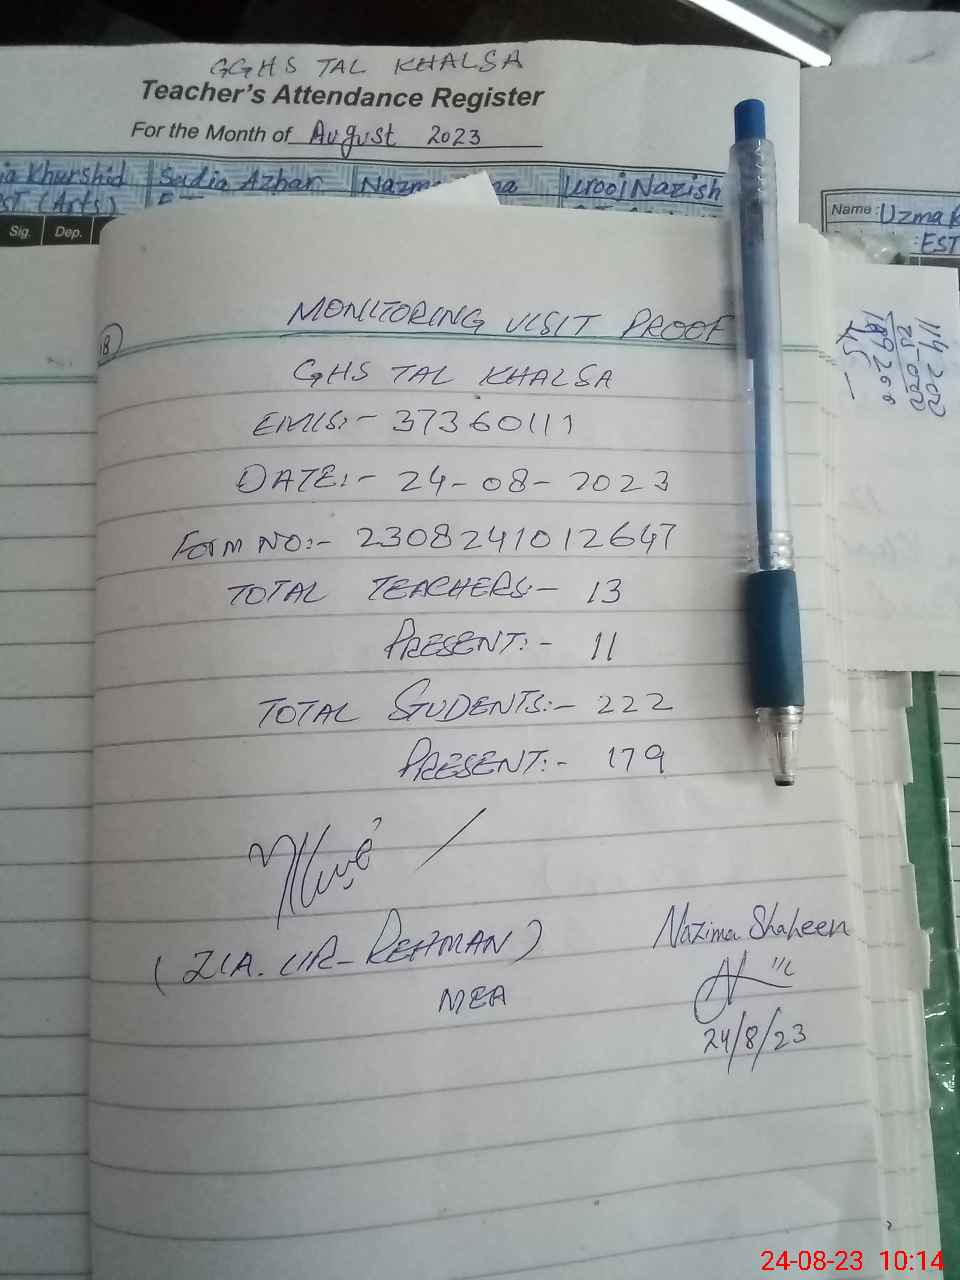 GGHS TAL KHALSA
Teacher's Attendance Register
For the Month of August 2023
ia Khurshid Sadia Azhar Urooj Nazish
ST (Arts)
Sig. Dep.
Name: Uzma
EST
18
MONITORING VISIT PROOF
GHS TAL KHALSA
EMIS:- 37360111
DATE:- 24-08-2023
FORM NO:- 2308241012647
TOTAL TEACHERS:- 13
PRESENT:- 11
TOTAL STUDENTS:- 222
PRESENT:- 179
(ZIA. UR-REHMAN)
MEA
Nazima Shaheen
24/8/23
24-08-23 10:14